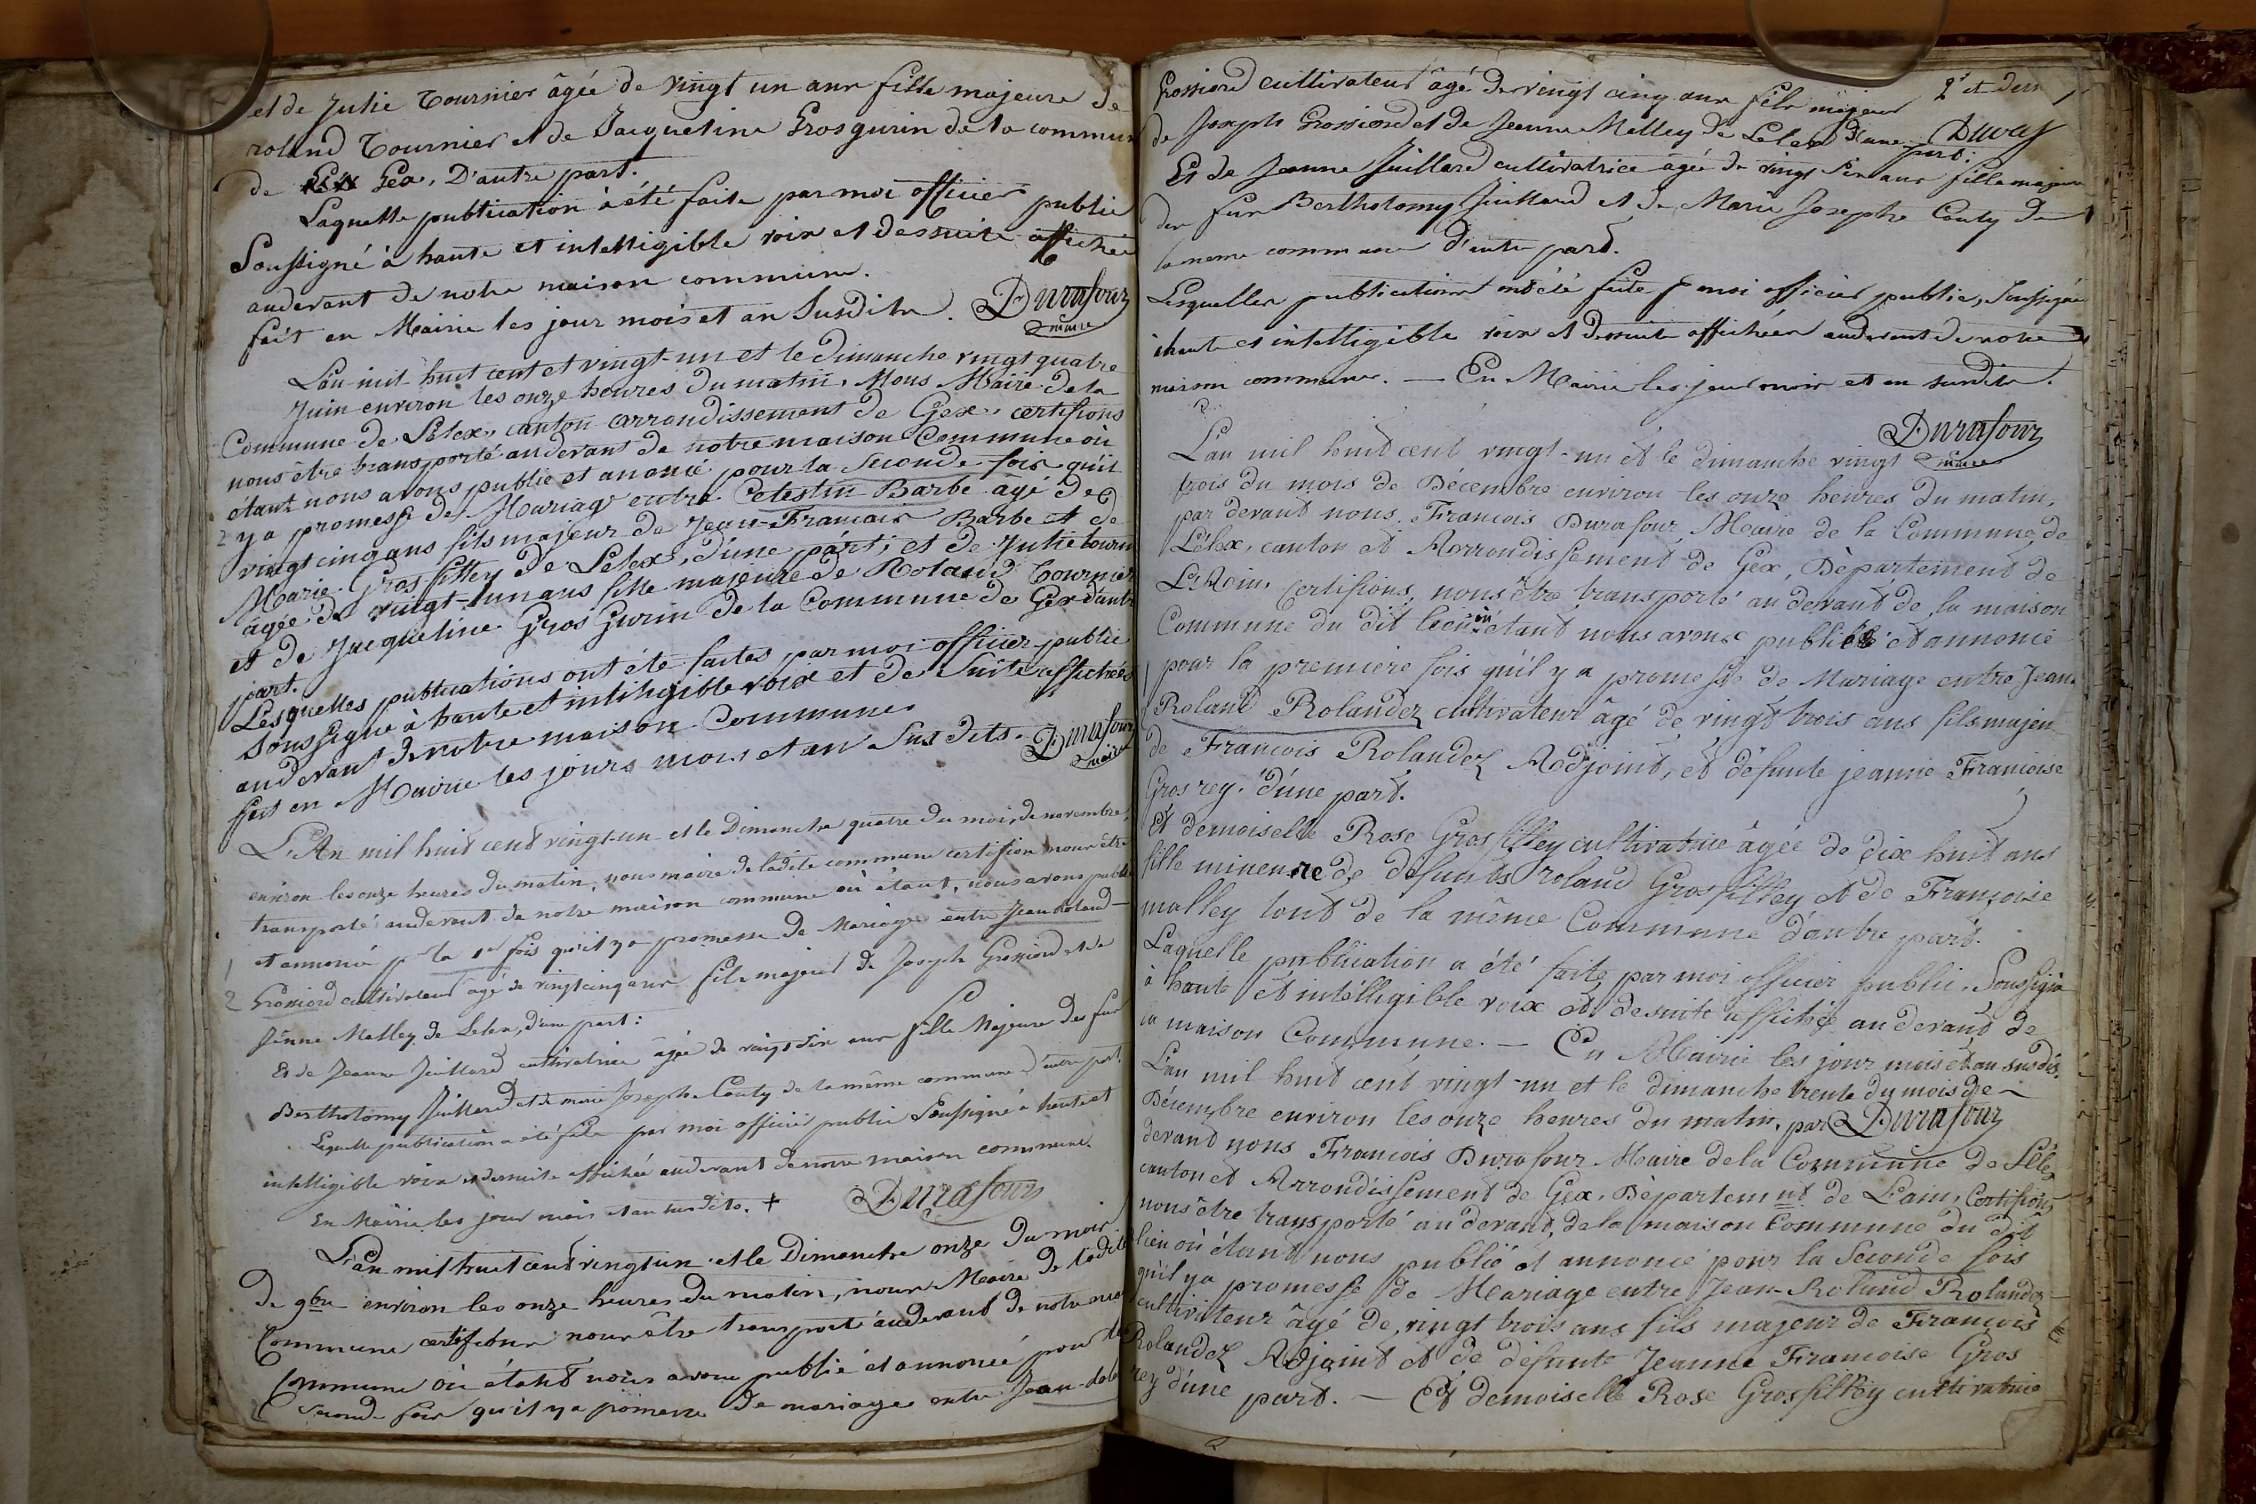 et de Julie Tournier âgée de vingt un ans fille majeure de
roland Tournier et de Jacqueline Grosgurin de la commun
de Gex, D'autre part.
Laquelle publication à été faite par moi officier public
Soussigné à haute et intelligible voix et dessuite affichée
audevant de notre maison commune.
fait en Mairie les jour mois et an Susdits. Durafour
maire
L'an mil-huit cent et vingt-un et le Dimanche vingt quatre
Juin environ les onze heures du matin, Nous Maire de la
Commune de Lélex, canton arrondissement de Gex, certifions
nous être transporté audevant de notre maison Commune où
étant nous avons publié et anoncé pour la Seconde fois qu'il
2 y a promesse de Mariage entre Celestin Barbe âgé de
vingt cinq ans fils majeur de Jean-Francois Barbe et de
Marie Gros filley de Lelex, d'une part; et de Julie tourni
âgée de vingt-un ans fille majeure de Roland Tournier
et de Jacqueline Gros Gurin de la Commune de Gex d'autre
part.
Lesquelles publications ont été faites par moi officier public
Soussigné à haute et intiligible voix et de Suite affichées
audevant de notre maison Commune.
fait en Mairie les jours mois et an Sus dits. Durafour
maire
L'An mil huit cent vingt-un et le Dimanche quatre du mois de novembre,
environ les onze heures du matin, nous maire de ladite commune certifions nous être
transporté audevant de notre maison commune où étant, nous avons publié
et annoncé pr la 1re fois qu'il y a promesse de Mariage entre Jean Roland
1
2 Grossiord cultivateur âgé de vingt cinq ans fils majeur de Joseph Grossiord et de
Jeanne Malley de Lelex, d'une part:
Et de Jeanne Juillard cultivatrice âgée de vingt six ans fille Majeure des fur
Bertholomy Juillard et de marie Josephe Couty de la même commune d'autre part.
Laquelle publication a été faite par moi officier public Soussigné à haute et
intelligible voix et dessuite affichée audevant de notre maison commune.
En Mairie les jour mois et an susdits. + Durafour
L'an mil huit cent vingt un et le Dimanche onze du mois
De 9bre environ les onze heures du matin, nous Maire de ladite
Commune certifions nous être transporté audevant de notre mai
Commune où étant nous avons publié et annoncé pour la
Seconde fois qu'il y a promesse de mariage entre Jean-
2e et der
Grossiord cultivateur âgé de vingt cinq ans fils majeur
de Joseph Grossiord et de Jeanne Malley de Lelex d'une part.
Et de Jeanne Juillard cultivatrice âgée de vingt six ans fille majeure
des fur Bertholomy Juillard et de Marie Josephe Couty de
la meme commune d'autre part.
Lesquelles publications ont été faite p moi officier public, Soussigné
à haute et intelligible voix et dessuite affichées audevant de notre
maison commune. — En Mairie les jour mois et an susdits.
Durafour
maire
L'an mil huit cent vingt-un et le dimanche vingt
trois du mois de Décembre environ les onze heures du matin,
par devant nous Francois Durafour Maire de la Commune de
Lélex, canton et Arrondissement de Gex, Département de
L'Ain, Certifions, nous être transporté au devant de la maison
Commune du dit lieu où étant nous avons publié et annoncé
1 pour la première fois qu'il y a promesse de Mariage entre Jean
Roland Rolandez cultivateur âgé de vingt trois ans fils majeu
de Francois Rolandez Adjoint, et défunte jeanne Francoise
Gros rey, d'une part.
Et demoiselle Rose Gros filley cultivatrice âgée de dix huit ans
fille mineure de défunts roland Gros filley et de Françoise
malley tous de la même Commune d'autre part.
Laquelle publication a été faite par moi officier public, Soussigné
à haute et intélligible voix et desuite affichée au devant de
la maison Commune. — En Mairie les jour mois et an susdits.
L'an mil huit cent vingt-un et le dimanche trente du mois de
Décembre environ les onze heures du matin, par Durafour
devant nous Francois Durafour Maire de la Commune de Léle
canton et Arrondissement de Gex, Département de L'ain, Certifions
nous être transporté au devant de la maison Commune du dit
lieu où étant nous publié et annoncé pour la Seconde fois
qu'il y a promesse de Mariage entre Jean-Roland Rolandez
cultivateur âgé de vingt trois ans fils majeur de Francois
Rolandez Adjoint et de défunte Jeanne Francoise Gros
rey d'une part. — Et demoiselle Rose Grosfilley cultivatrice